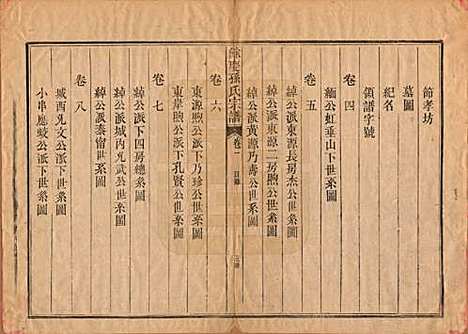 節孝坊
墓圖
紀名
領譜字號
卷四
緬公虹垂山下世系圖
卷五
綽公派東源長房杰公世系圖
綽公派東源二房煦公世系圖
綽公派黃源乃壽公世系圖
孫氏宗譜
卷一
目錄
卷六
東源煦公派下乃珍公世系圖
東皐煦公派下孔賢公世系圖
卷七
綽公派下四房總系圖
綽公派城內元武公世系圖
綽公派泰甯世系圖
卷八
城西元文公派下世系圖
小串應蛟公派下世系圖